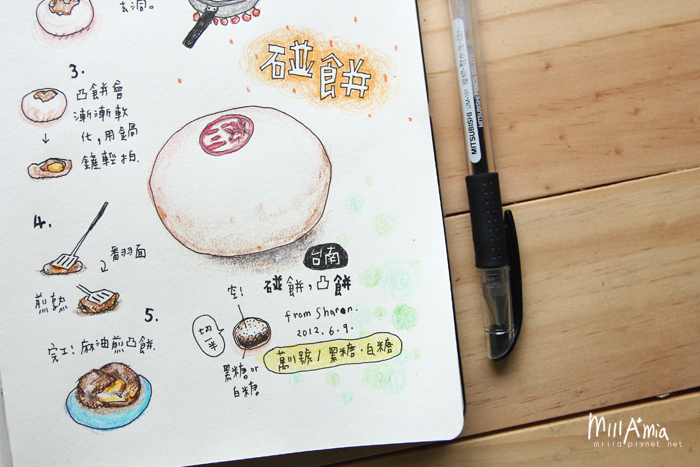 去洞。
碰餅
3.
凸餅會
漸漸軟
化,用鍋
鏟輕拍.
4.
翻面
煎熟
5.
完工!麻油煎凸餅.
台南
碰餅,凸餅
from Sharon.
2012.6.9.
萬川號/黑糖.白糖
空!
切一半
黑糖or
白糖
MITSUBISHI
Milla*mia
milla.pixnet.net